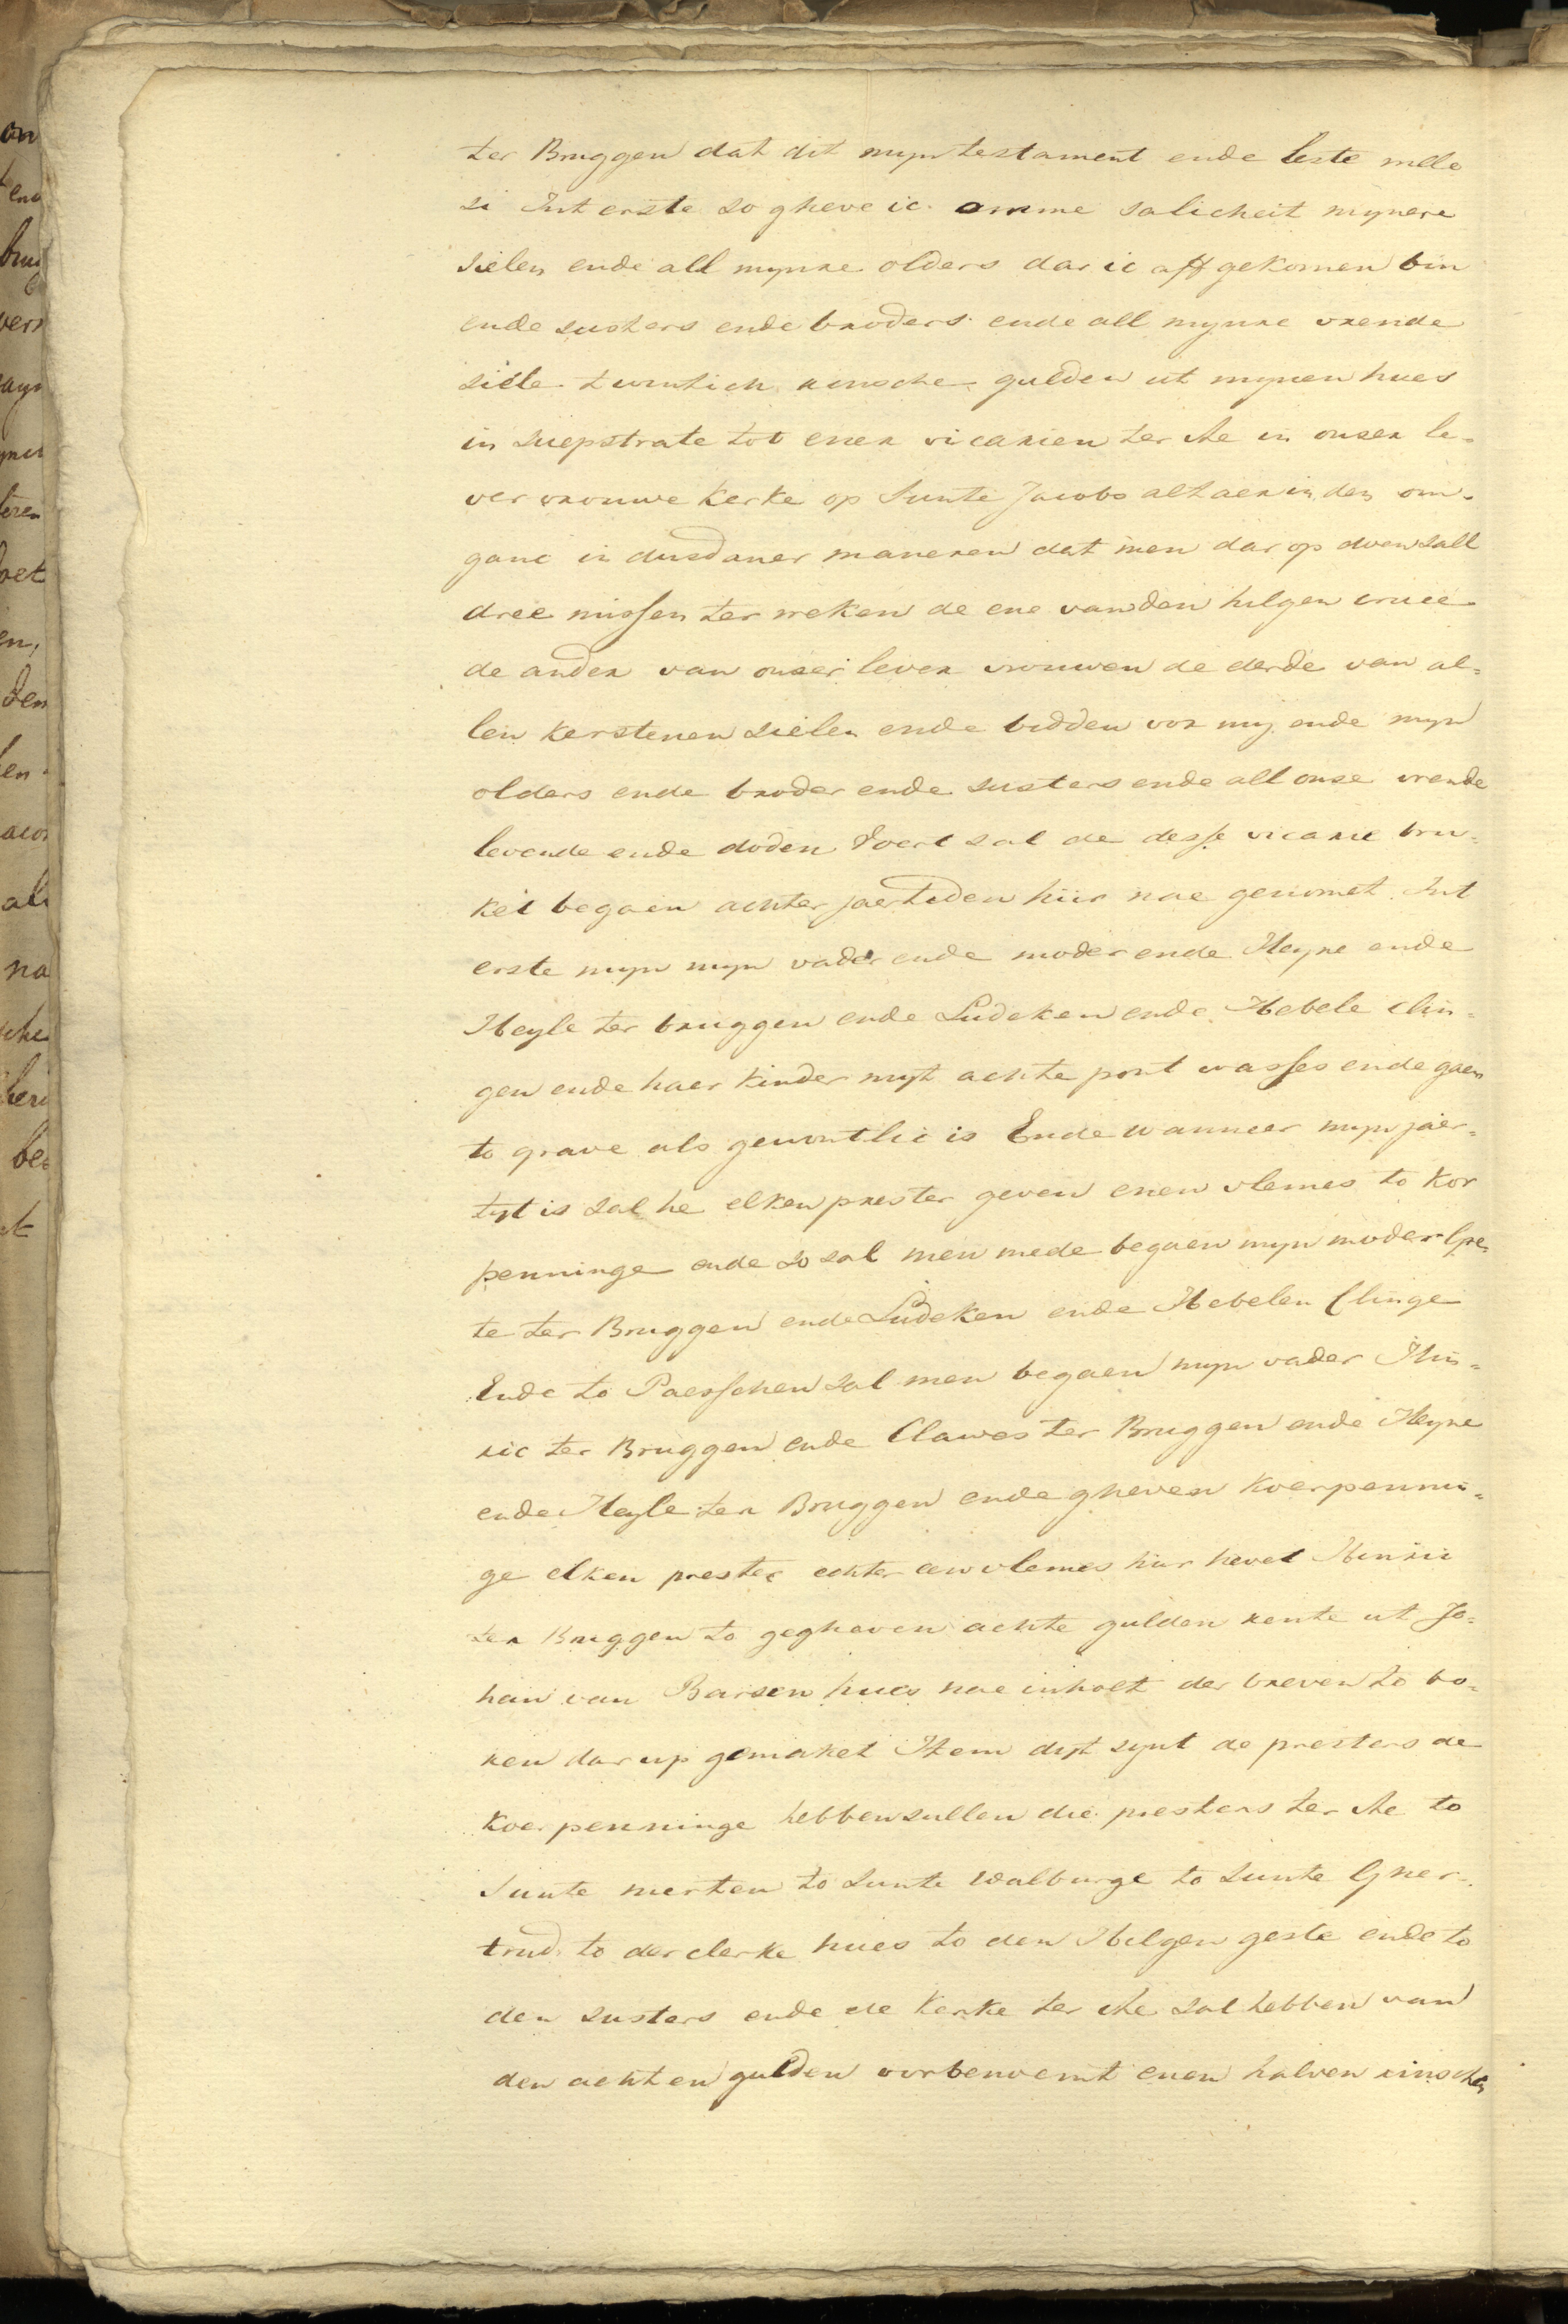 ter Bruggen dat dit myn testament ende leste wille
si Int erste so gheve ic omme salicheit mynere
sielen ende all mynre olders dar ic aff gekomen bin
ende susters ende broders ende all mynre vrende
siele twintich rinsche gulden ut mynen hues
in Suepstrate tot ener vicarien ter Ae in onser le-
ver vrouwe kerke op Sunte Jacobs altaer in den om-
ganc in dusdaner maneren dat men dar op doen sall
dree missen ter weken de ene van den hilgen cruce
de ander van onser lever vrouwen de derde van al-
len kerstenen sielen ende bidden vor my ende myn
olders ende broder ende susters ende all onse vrende
levende ende doden Voert sal de desse vicarie bru-
ket begaen achter jaertiden hiir nae genomet Int
erste myn myn vader ende moder ende Heyne ende
Heyle ter bruggen ende Ludeken ende Hebele clin-
gen ende haer kinder myt achte pont wasses ende gaen
to grave als gewontlic is Ende wanneer myn jaer-
tyt is sal he elken prester geven enen vlemes to kor
penninge ende so sal men mede begaen myn moder Gre-
te ter Bruggen ende Ludeken ende Hebelen Clinge
Ende to Paesschen sal men begaen myn vader Hin-
ric ter Bruggen ende Clawes ter Bruggen ende Heyne
ende Heyle ter Bruggen ende gheven koerpennin-
ge elken prester echter en vlemes hiir hevet Hinric
ter Bruggen to gegheven achte gulden rente ut Jo-
han van Barsen hues nae inholt der breven to bo-
ren dar up gemaket Item dyt synt de presters de
koerpenninge hebben sullen die presters ter Ae to
Sunte merten to Sunte Walburge to Sunte Gher-
trud to der clerke hues to den Hilgen geste ende to
den susters ende de kerke ter Ae sal hebben van
den achten gulden vorbenoemt enen halven rinschen